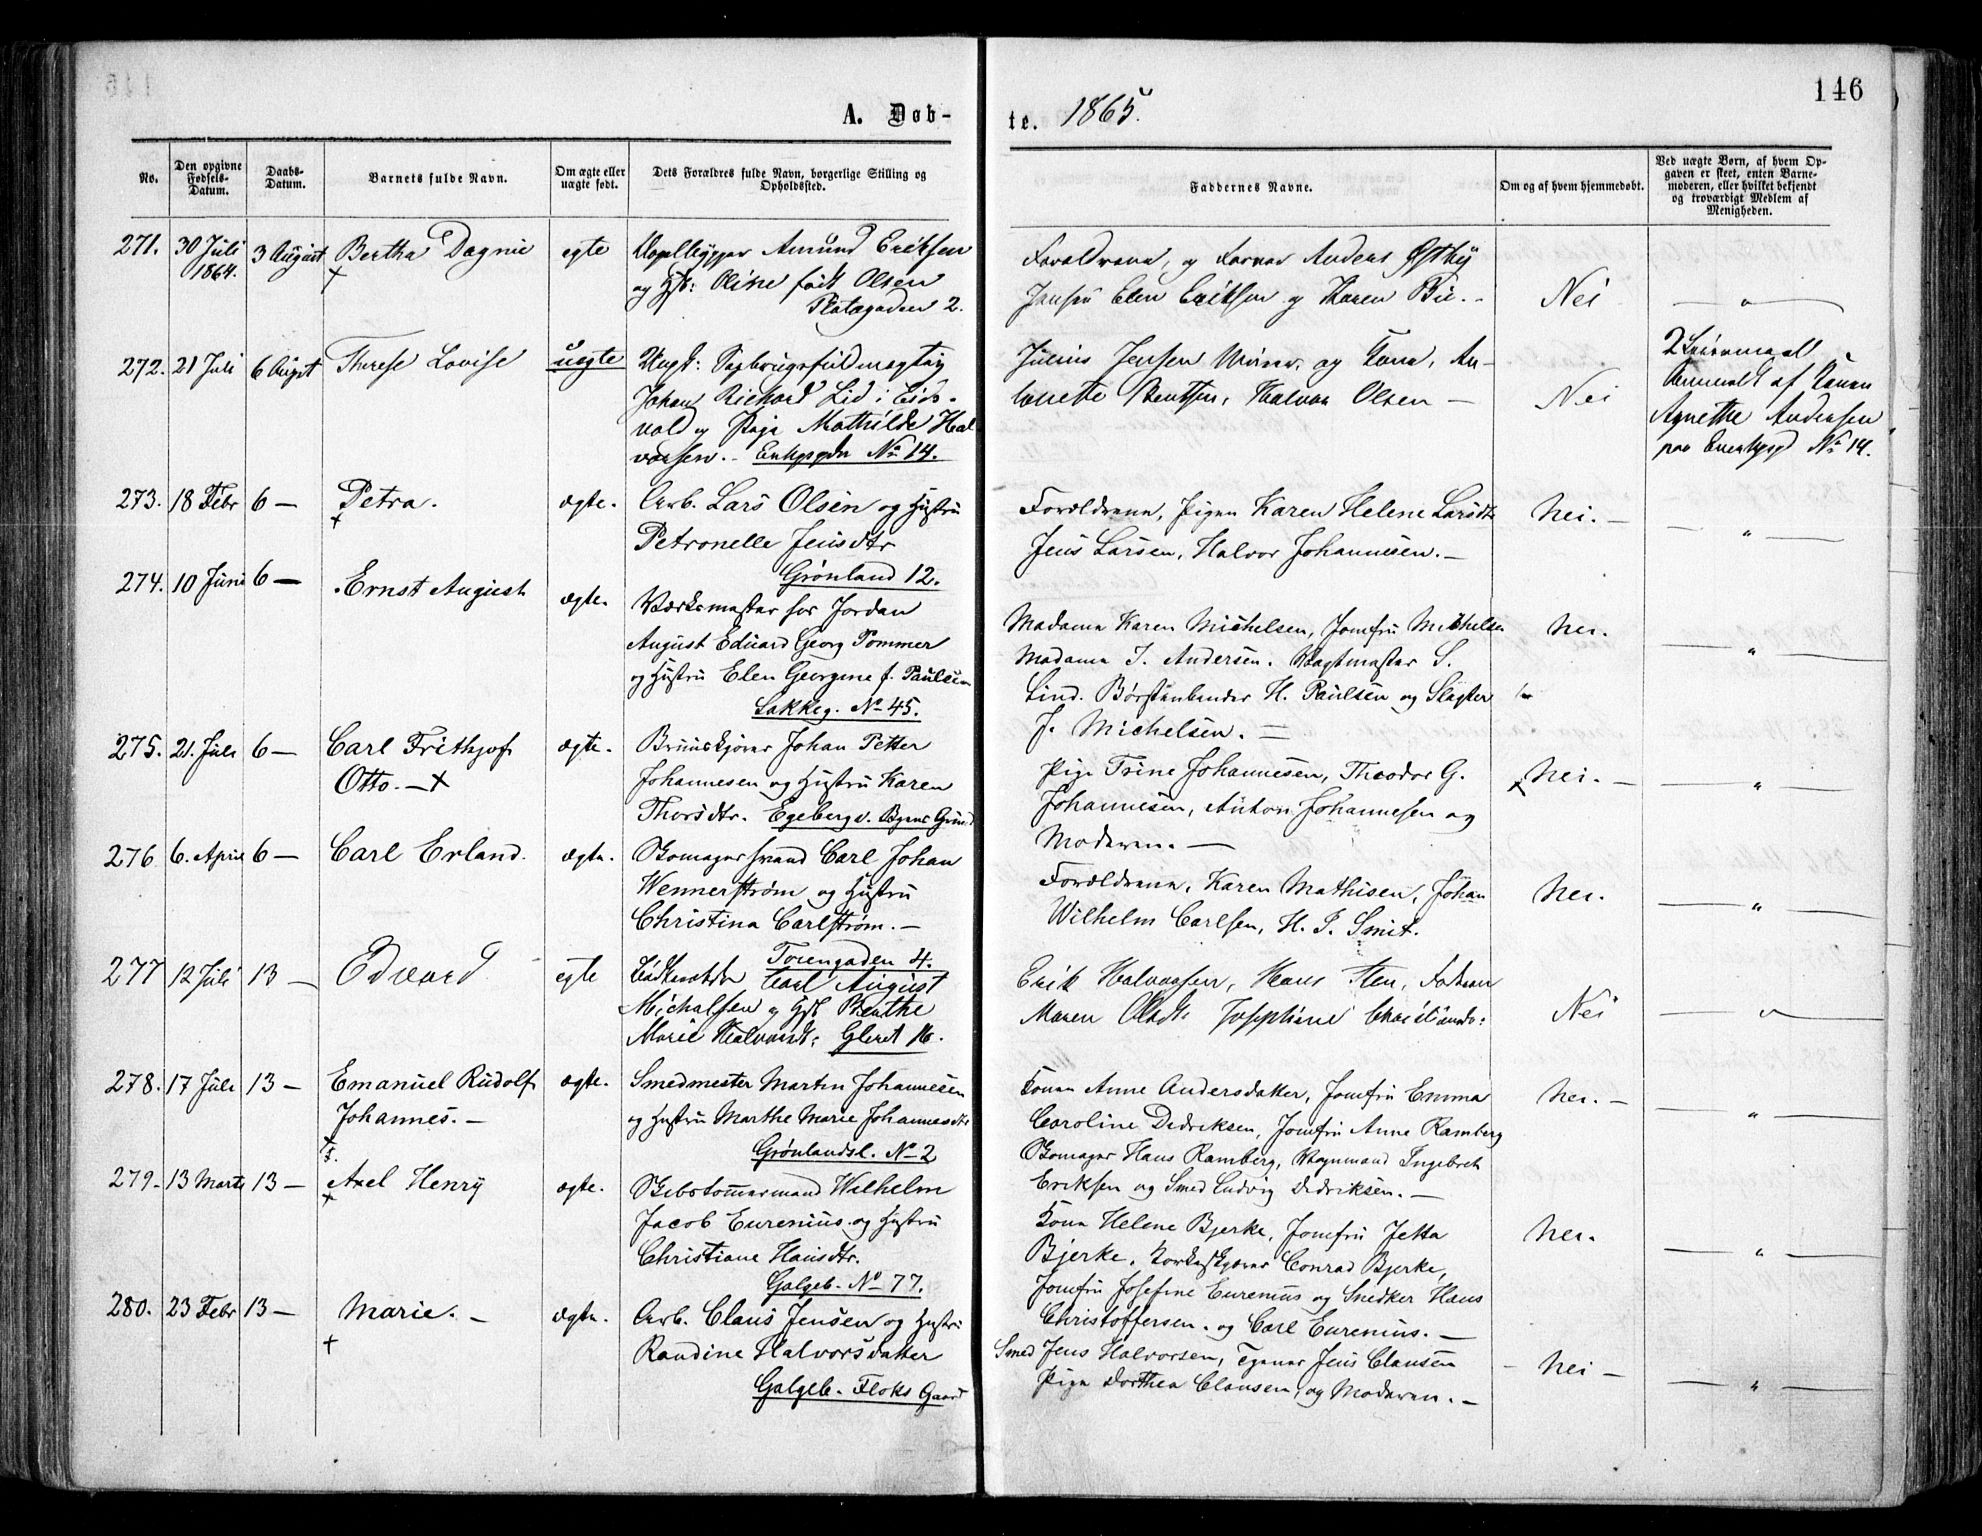 146
A. Døb-
te. 1865.
No.
Den opgivne Fødsels-Datum.
Daabs-Datum.
Barnets fulde Navn.
Om ægte eller uægte født.
Dets Forældres fulde Navn, borgerlige Stilling og Opholdssted.
Faddernes Navne.
Om og af hvem hjemmedøbt.
Ved uægte Børn, af hvem Opgaven er skeet, enten Barnemoderen, eller hvilket bekjendt og troværdigt Medlem af Menigheden.
271. 30 Juli 1864. 3 August Bertha Dagnie egte
Amund Eriksen
og Hst: Oline født Olsen
Platougaden 2.
Forældrene, og Anders Østby
Jensen Elen Eriksen og Karen Bie. -
Nei
272. 21 Juli 6 Augst Therese Lovise uegte
Ungk: Sagbrugsfuldmægtig
Johan Richard Lid i Eids-
vold og Pige Mathilde Hal-
vorsen. - Enkgpdn No 14.
Julius Jensen og Kone, An-
Bentsen, Halvor Olsen -
Nei
2 Leiermaal
Anmeldt af Konen
Agnethe Andersen
No 14.
273. 18 Febr 6 - Petra. ægte.
Arb. Lars Olsen og Hustru
Petronelle Jensdtr
Grønland 12.
Forældrene, Pigen Karen Helene Larsdtr
Jens Larsen, Halvor Johannesen. -
Nei. -
274. 10 Juni 6 - Ernst August ægte.
Værksmester hos Jordan
August Eduard Georg Pommer
og Hustru Elen Georgine f. Paulsen
Lakkeg. No 45.
Madame Karen Michelsen, Jomfru Michelsen
Madame J. Andersen. Vagtmester S.
Lind. Børstenbinder H. Paulsen og Slagter
J. Michelsen. =
Nei.
275. 21. Juli 6 - Carl Frithjof
Otto. - + ægte.
Johan Petter
Johannesen og Hustru Karen
Thorsdtr. Egebergv. Byens Grund
Pige Trine Johannesen, Theodor G.
Johannesen, Anton Johannesen og
Moderen. -
Nei. -
276 6. April 6 - Carl Erland. ægte.
Skomagersvend Carl Johan
Wennerström og Hustru
Christina Carlström. -
Torvgaden 4.
Forældrene, Karen Mathisen, Johan
Wilhelm Carlsen, H. P. Smit.
Nei.
277 12 Juli 13 - Edvard egte
Carl August
Michalsen og Hst Berthe
Marie Halvorsdt: Gleret 16.
Erik Halvorsen, Hans Sten, Faderen
Maren Olsdt: Josephine Christiansd:
Nei
278. 17 Juli 13 - Emanuel Rudolf
Johannes. - ægte.
Smedmester Martin Johannesen
og Hustru Marthe Marie Johannesdtr
Grønlandsl. No 2
Kone Anne Andersdatter, Jomfru Emma
Caroline Didriksen, Jomfru Anne Ramberg
Skomager Hans Ramberg, Vognmand Ingebret
Eriksen og Smed Ludvig Didriksen. -
Nei. -
279. 13 Marts 13 - Axel Henry ægte.
Skibstømmermand Wilhelm
Jacob Eurenius og Hustru
Christiane Hansdtr.
Galgeb. No 77.
Kone Helene Bjerke, Jomfru Jetta
Bjerke, Korkeskjærer Conrad Bjerke,
Jomfru Josefine Eurenius og Snedker Hans
Christoffersen. og Carl Eurenius. -
Nei.
280. 23 Febr 13 - Marie. - ægte.
Arb. Claus Jensen og Hustru
Randine Halvorsdatter
Galgeb. Floks Gaard
Smed Jens Halvorsen, Jens Clausen
Pige Dorthea Clausen, og Moderen. -
- Nei -